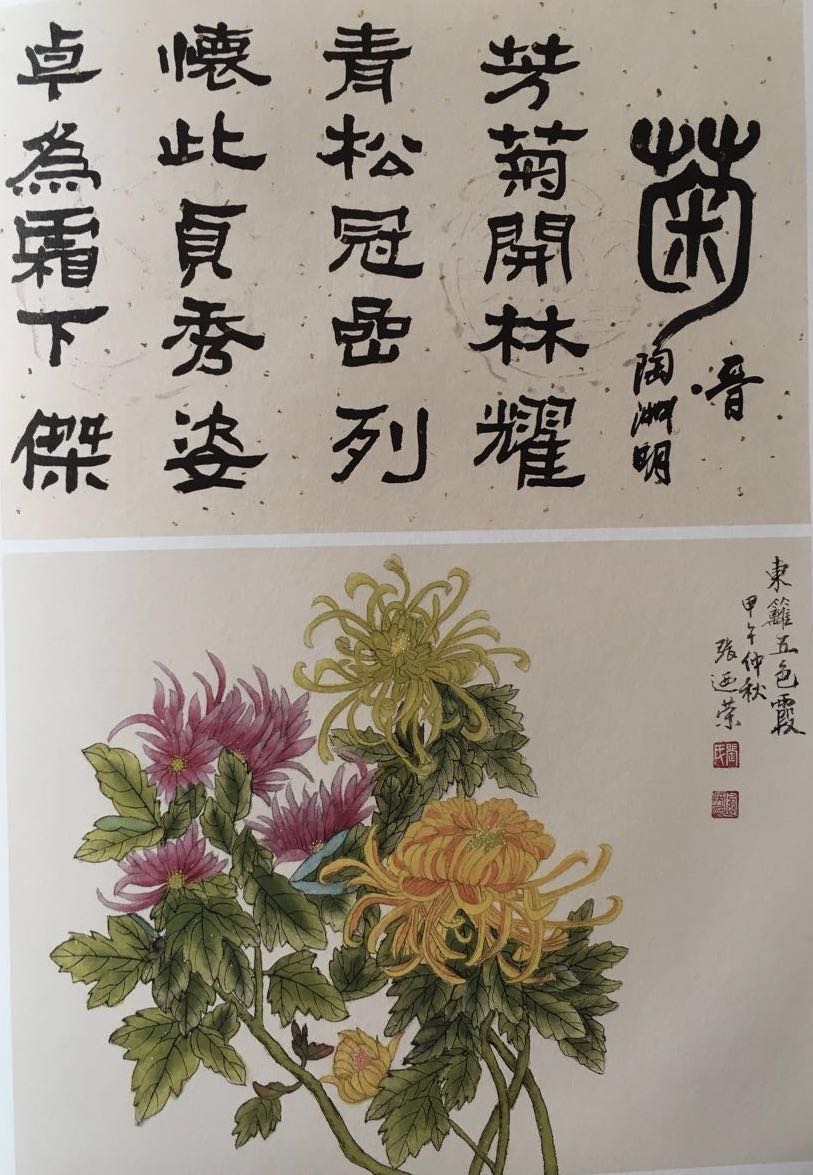 菊
晋·
陶渊明
芳菊開林耀
青松冠嵒列
懷此貞秀姿
卓為霜下傑
東籬五色霞
甲午仲秋
張迺荣
張氏